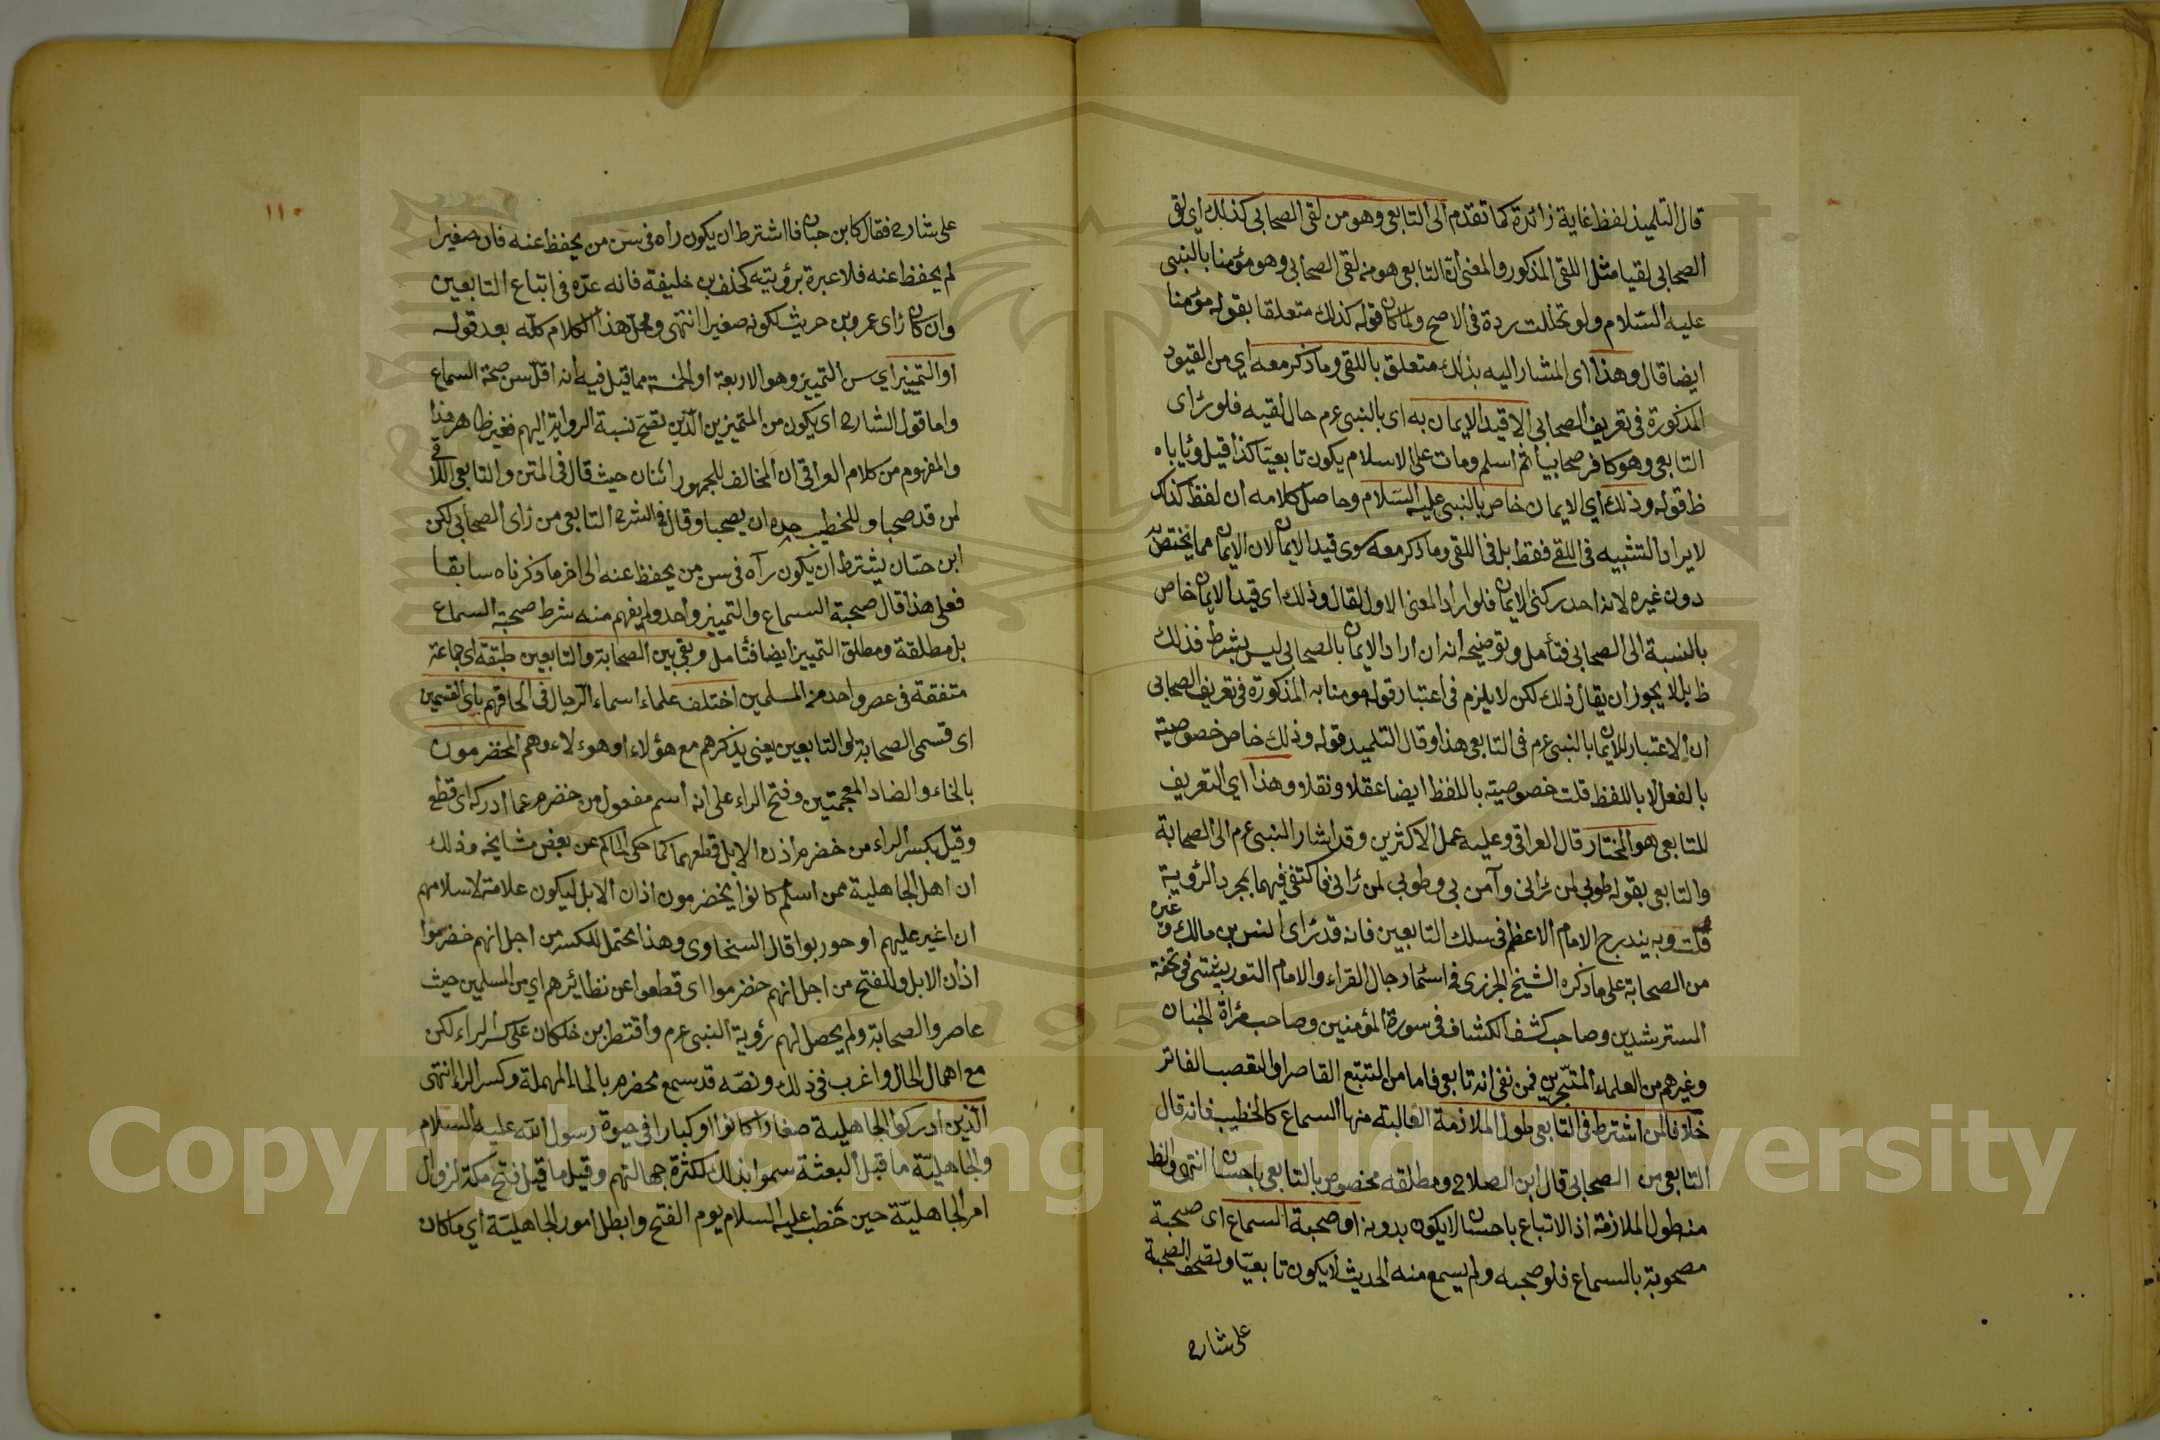 قال التلميذ لفظ غاية زائدة كما تقدم الى التابعى وهو من لقى الصحابى كذلك اى لقى
الصحابى لقيا مثل اللقى المذكور والمعنى ان التابعى هو من لقى الصحابى وهو مؤمنا بالنبى
عليه السلام ولو تخللت ردة فى الاصح ولما كان قوله كذلك متعلقا بقوله مؤمنا
ايضا قال وهذا اى المشار اليه بذلك متعلق باللقى وما ذكر معه اى من القيود
المذكورة فى تعريف الصحابى الا قيد الايمان به اى بالنبى عم حال لقيه فلو رأى
التابعى وهو كافر صحابيا ثم اسلم ومات على الاسلام يكون تابعيا كذا قيل ويأباه
ظ قوله وذلك اى الايمان خاص بالنبى عليه السلام وحاصل كلامه ان لفظ كذلك
لا يراد التشبيه فى اللقى فقط بل فى اللقى وما ذكر معه سوى قيد الايمان لان الايمان مما يختص به
دون غيره لانه احد ركنى الايمان فلو اراد المعنى الاول لقال وذلك اى قيد الايمان خاص
بالنسبة الى الصحابى فتأمل وتوضيحه انه ان اراد الايمان بالصحابى ليس بشرط فذلك
ظ بل لا يجوز ان يقال ذلك لكن لا يلزم فى اعتبار قوله مومنا به المذكورة فى تعريف الصحابى
ان الاعتبار للايمان بالنبى عم فى التابعى هذا وقال التلميذ قوله وذلك خاص خصوصيته
بالفعل لا باللفظ قلت خصوصيته باللفظ ايضا عقلا ونقلا وهذا اى التعريف
للتابعى هو المختار قال العراقى وعليه عمل الاكثرين وقد اشار النبى عم الى الصحابة
والتابعى بقوله طوبى لمن رانى وآمن بى وطوبى لمن رأى فاكتفى فيهما بمجرد الرؤية
قلت وبه يندرج الامام الاعظم فى سلك التابعين فانه قد رأى انس بن مالك وغيره
من الصحابة على ما ذكره الشيخ الجزرى فى اسماء رجال القراء والامام التوربشتى فى تحفة
المسترشدين وصاحب كشف الكشاف فى سورة المؤمنين وصاحب مرأة الجنان
وغيرهم من العلماء المتبحرين فمن نفى انه تابعى فاما من التتبع القاصر او التعصب الفاتر
خلافا لمن اشترط فى التابعى طول الملازمة الغالبة منها السماع كالخطيب فانه قال
التابعى من الصحابى قال ابن الصلاح ومطلقه مخصوص بالتابعى باحسان انتهى والظ
منه طول الملازمة اذ الاتباع باحسان لا يكون بدونه او صحبة السماع اى صحبة
مصحوبة بالسماع فلو صحبه ولم يسمع منه الحديث لا يكون تابعيا وتصحف الصحبة
على شارح
١١٠
على شارح فقال كابن حبان فااشترط ان يكون راه فى سن من يحفظ عنه فان صغيرا
لم يحفظ عنه فلا عبرة برؤيته كخلف بن خليفة فانه عده فى اتباع التابعين
وان كان رأى عمرو بن حريث لكونه صغيرا انتهى ومحل هذا الكلام كله بعد قوله
او التمييز اى سن التمييز وهو الاربعة او الخمسة مما قيل فيه انه اقل سن صحة السماع
واما قول الشارح اى يكون من المتميزين الذين تصح نسبة الرواية اليهم فغير ظاهر هذا
والمفهوم من كلام العراقى ان المخالف للجمهور اثنان حيث قال فى المتن والتابعى اللاقى
لمن قد صحبا وللخطيب حده ان يصحبا وقال فى الشرح التابعى من رأى الصحابى لكن
ابن حبان يشترط ان يكون رآه فى سن من يحفظ عنه الى اخر ما ذكرناه سابقا
فعلى هذا قال صحبة السماع والتمييز واحد ولم يفهم منه شرط صحبة السماع
بل مطلقة ومطلق التمييز ايضا فتأمل وبقى بين الصحابة والتابعين طبقة اى جماعة
متفقة فى عصر واحد من المسلمين اختلف علماء اسماء الرجال فى الحاقهم باى القسمين
اى قسمى الصحابة او التابعين يعنى يذكرهم مع هؤلاء او هؤلاء وهم المخضرمون
بالخاء والضاد المعجمتين وفتح الراء على انه اسم مفعول من خضرم عما ادركه اى قطع
وقيل بكسر الراء من خضرم اذن الابل قطعها كما حكى الحاكم عن بعض مشايخه وذلك
ان اهل الجاهلية ممن اسلم كانوا يخضرمون اذان الابل ليكون علامة لاسلامهم
ان اغير عليهم او حوربوا قال السخاوى وهذا يحتمل للكسر من اجل انهم خضرموا
اذان الابل وللفتح من اجل انهم خضرموا اى قطعوا عن نظائرهم اى من المسلمين حيث
عاصروا الصحابة ولم يحصل لهم رؤية النبى عم واقتصر ابن خلكان على كسر الراء لكن
مع اهمال الحال واغرب فى ذلك ونصه قد سمع محضرم بالحاء المهملة وكسر الراء انتهى
الذين ادركوا الجاهلية صغارا كانوا او كبارا فى حيوة رسول الله عليه السلام
والجاهلية ما قبل البعثة سموا بذلك لكثرة جهالتهم وقيل ما قبل فتح مكة لزوال
امر الجاهلية حين خطب عليه السلام يوم الفتح وابطل امور الجاهلية اى ما كان
Copyright © King Saud University